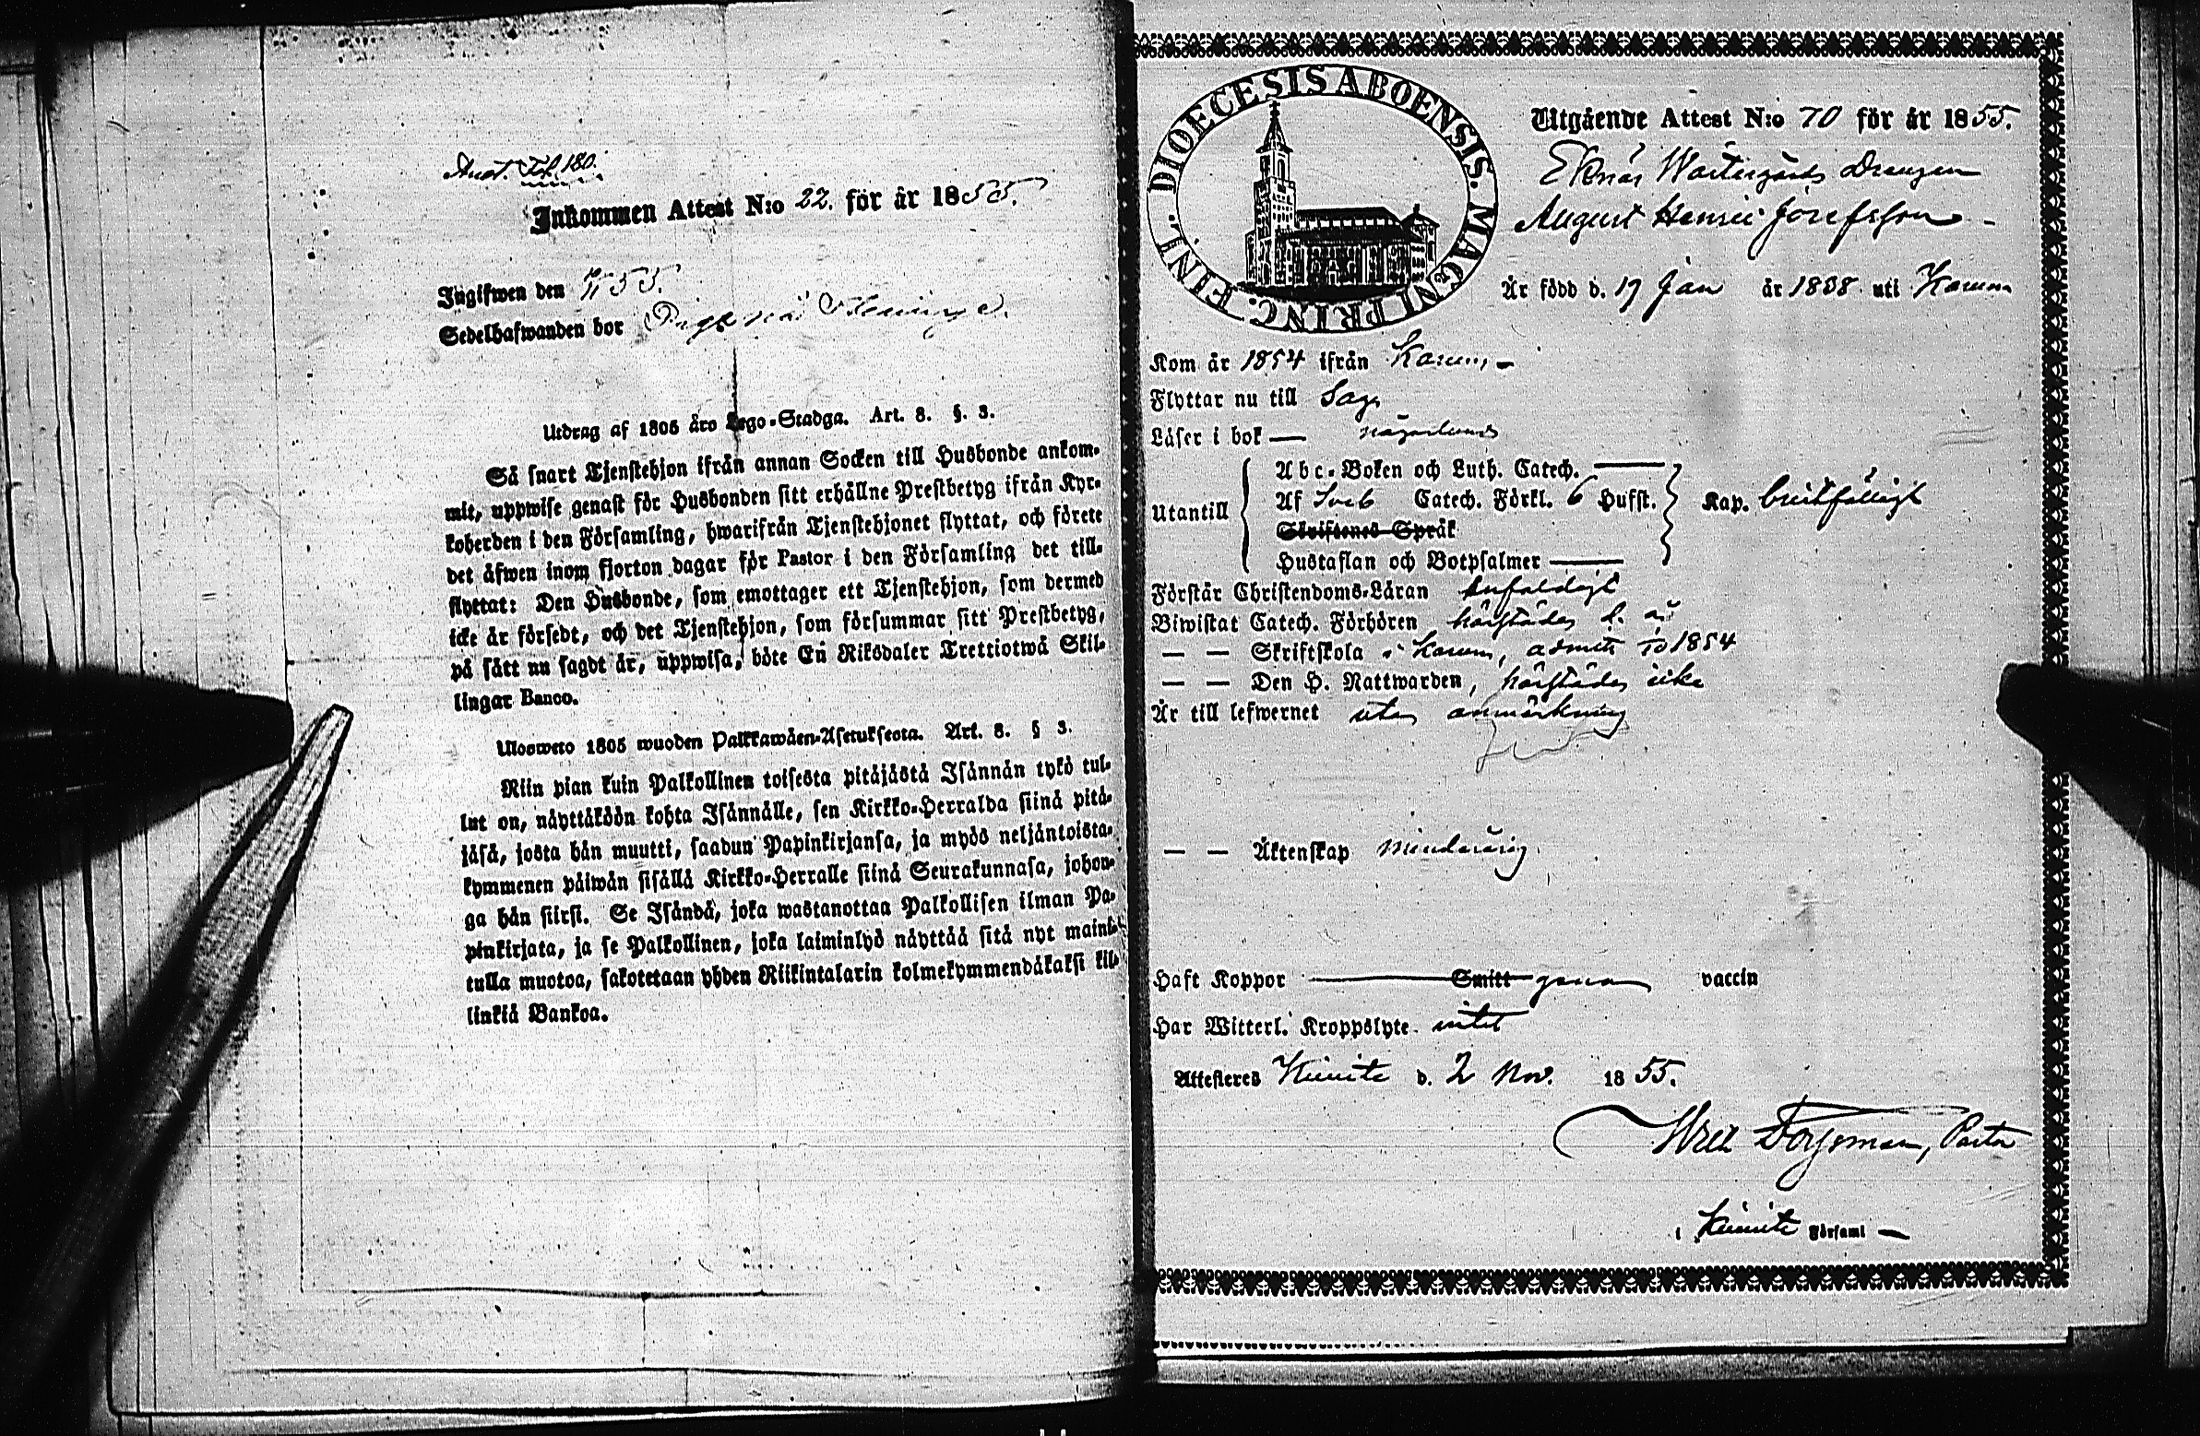 Anot. Fol. 180.
Inkommen Attest N:o 22. för år 1855.
Ingifwen den 55.
Sedelhafwanden bor
Utdrag af 1805 års Lego-Stadga. Art. 8. §. 3.
Så snart Tjenstehjon ifrån annan Socken till Husbonde ankom-
mit, uppwise genast för Husbonden sitt erhållne Prestbetyg ifrån Kyr-
koherden i den Församling, hwarifrån Tjenstehjonet flyttat, och förete
det äfwen inom fjorton dagar för Pastor i den Församling det till-
flyttat: Den Husbonde, som emottager ett Tjenstehjon, som dermed
icke är försedt, och det Tjenstehjon, som försummar sitt Prestbetyg,
på sätt nu sagdt är, uppwisa, böte En Riksdaler Trettiotwå Skil-
lingar Banco.
Ulosweto 1805 wuoden Palkkawäen-Asetuksesta. Art. 8. § 3.
Niin pian kuin Palkollinen toisesta pitäjästä Isännän tykö tul-
lut on, näyttäköön kohta Isännälle, sen Kirkko-Herralda siinä pitä-
jäsä, josta hän muutti, saadun Papinkirjansa, ja myös neljäntoista-
kymmenen päiwän sisällä Kirkko-Herralle siinä Seurakunnasa, johon-
ga hän siirsi. Se Isändä, joka wastanottaa Palkollisen ilman Pa-
pinkirjata, ja se Palkollinen, joka laiminlyö näyttää sitä nyt mainit-
tulla muotoa, sakotetaan yhden Riikintalarin kolmekymmendäkaksi kil-
linkiä Bankoa.
DIOECESIS ABOENSIS. MAGNI PRINC. FINL.
Utgående Attest N:o 70 för år 1855.
Eknäs Westergårds Drengen
August Henric Josefsson
Är född d. 17 Jan år 1838 uti Karuna
Kom år 1854 ifrån Karuna
Flyttar nu till Sagu
Läser i bok någorlunda
Utantill
Abc-Boken och Luth. Catech.
Af Sveb Catech. Förkl. 6 Hufst.
Skriftenes Språk
Hustaflan och Botpsalmer
Kap. bristfälligt
Förstår Christendoms-Läran enfaldigt
Biwistat Catech. Förhören härstädes d. år
— — Skriftskola i Karuna, admitt 1854
— — Den H. Nattwarden, härstädes icke
Är till lefwernet utan anmärkning
— — Äktenskap minderårig
Haft Koppor Smitt genom vaccin
Har Witterl. Kroppslyte intet
Attesteres Kimito d. 2 Nov. 1855.
Pastor
i Kimito Församl